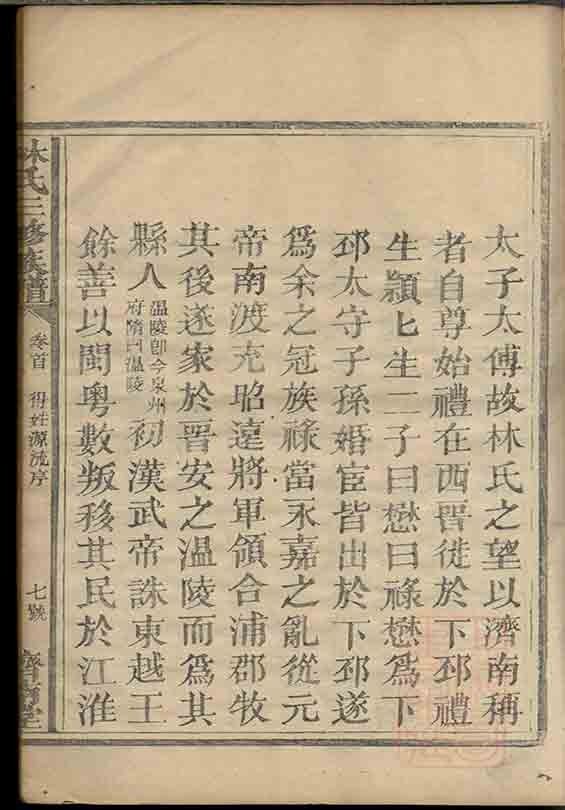 太子太傅故林氏之望以濟南稱
者自尊始禮在西晋徙於下邳禮
生顯匕生二子曰懋曰祿懋爲下
邳太守子孫婚宦皆出於下邳遂
爲余之冠族祿當永嘉之亂從元
帝南渡充昭遠將軍領合浦郡牧
其後遂家於晋安之温陵而爲其
縣人温陵卽今泉州府隋曰温陵初漢武帝誅東越王
餘善以閩粤數叛移其民於江淮
林氏三修族譜
卷首
得姓源流序
七號
濟南堂